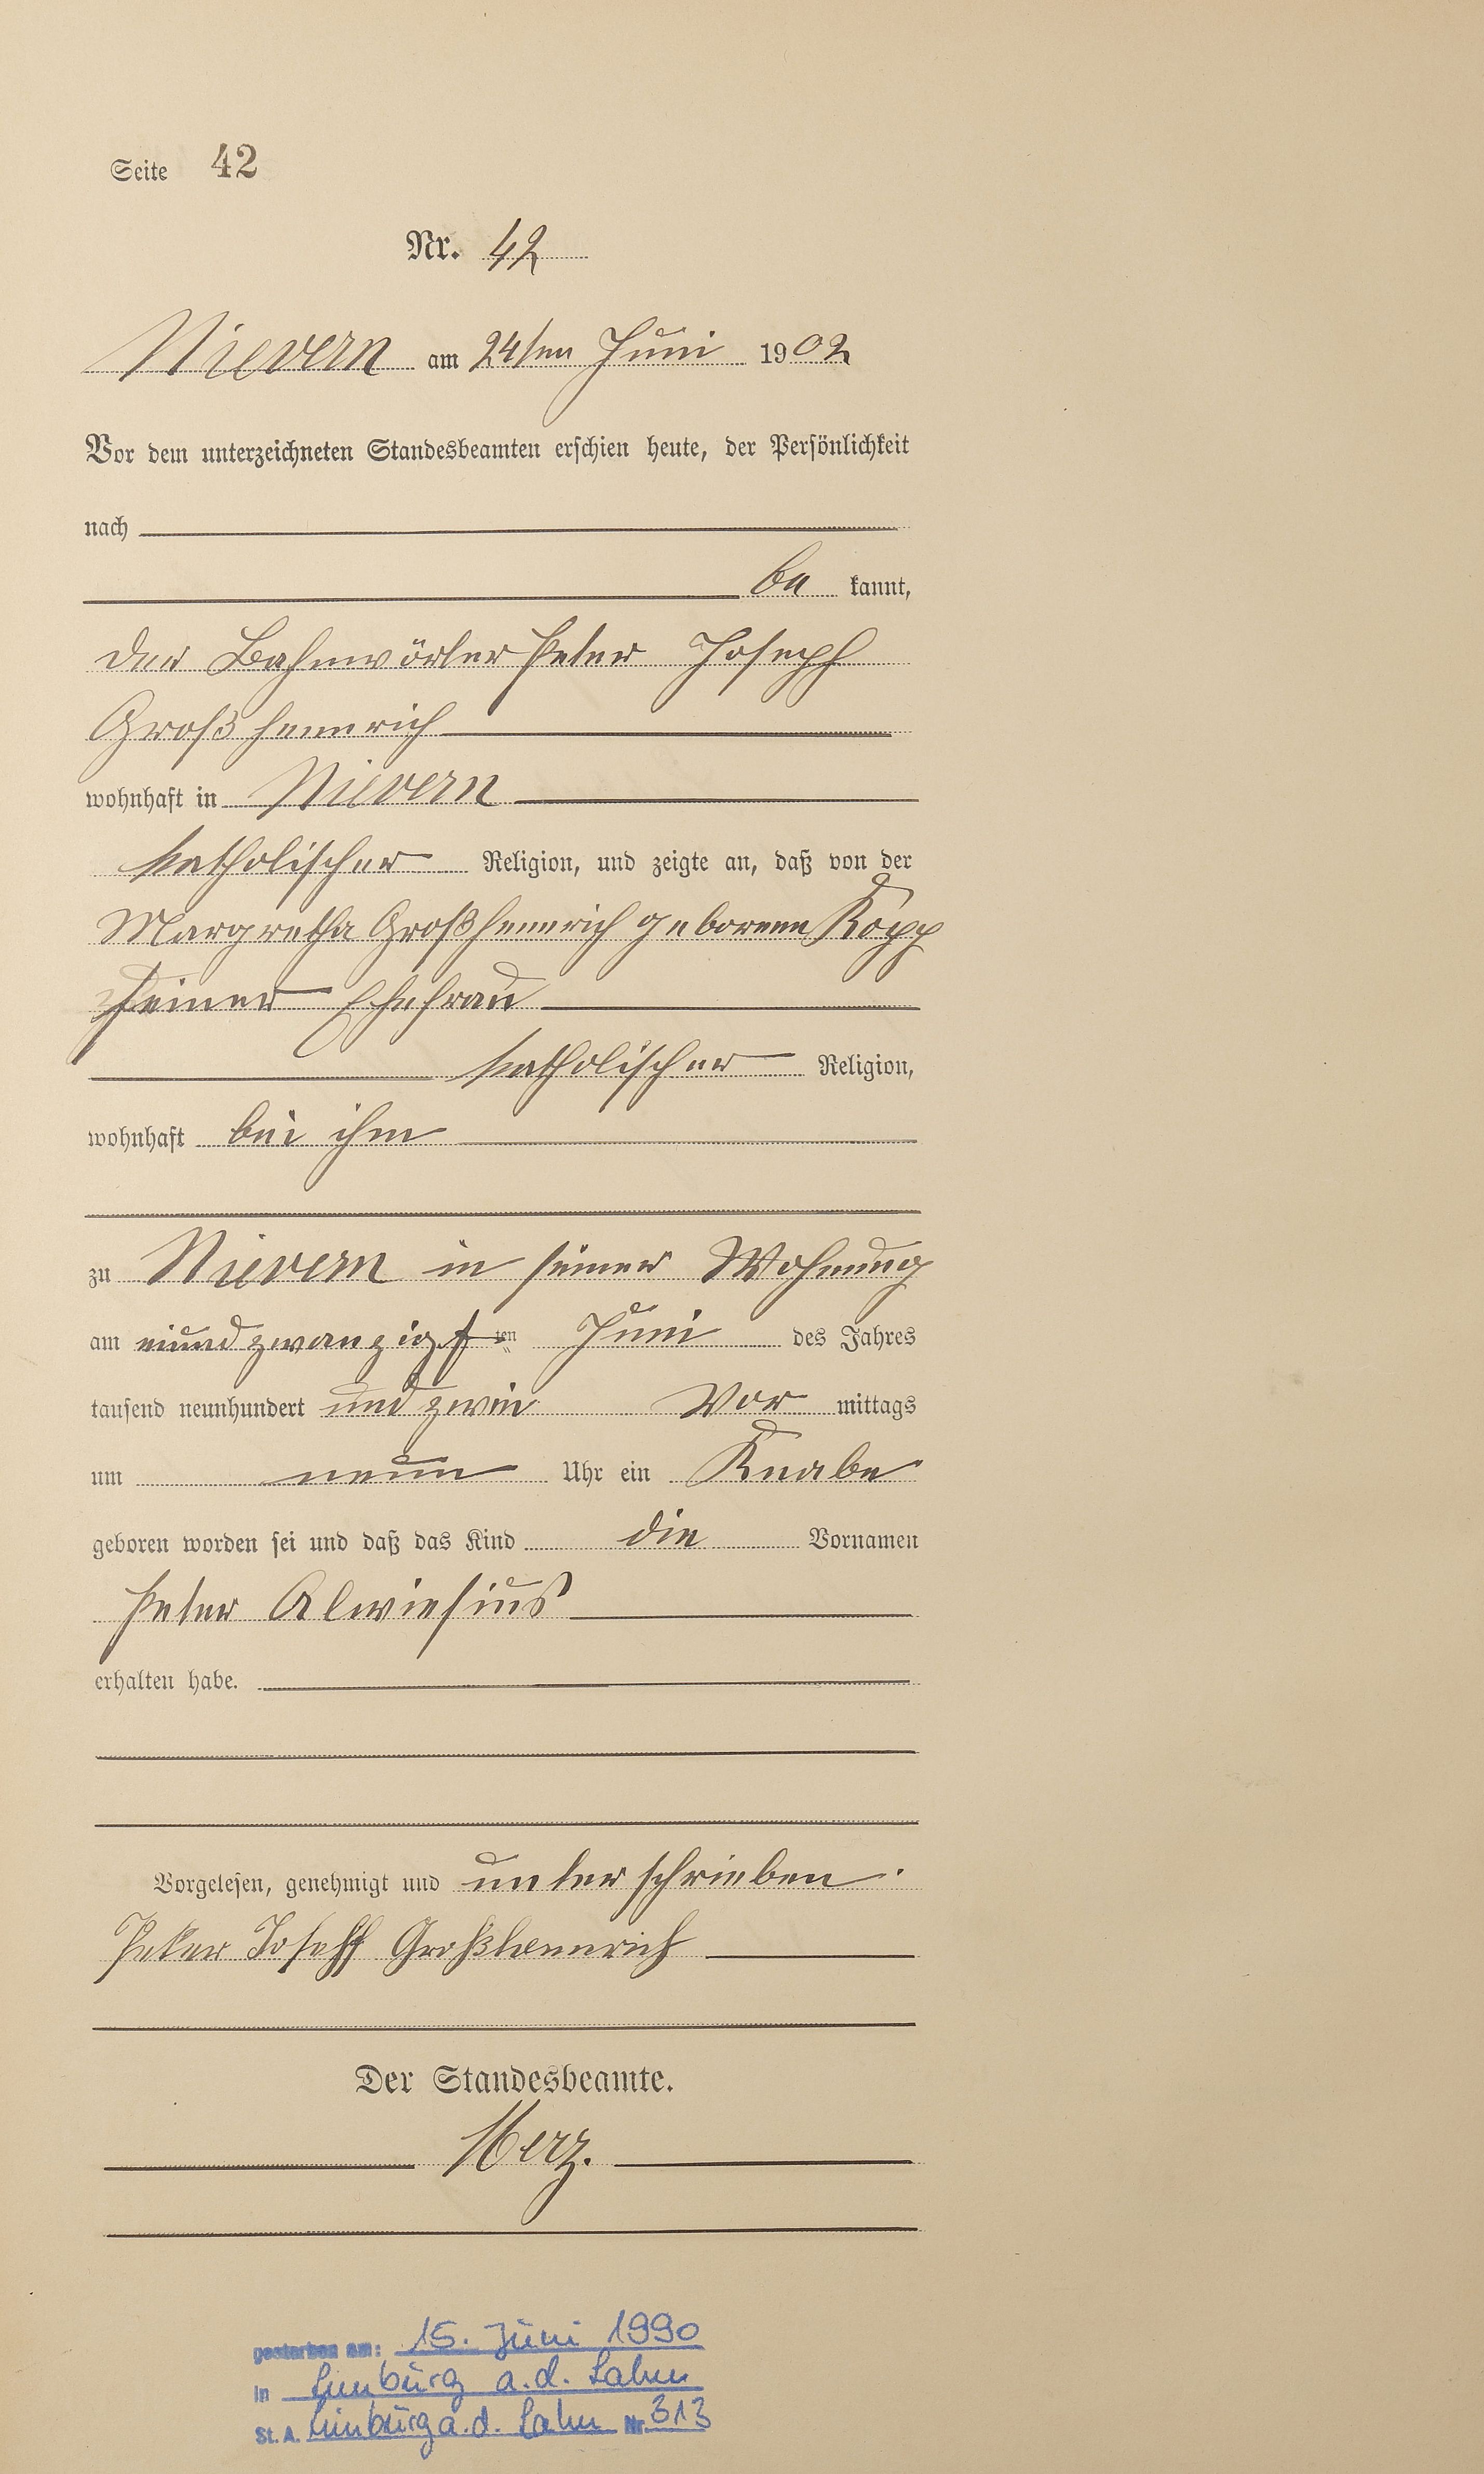 Seite 42
Nr. 42
Nievern am 24ten Juni 1902
Vor dem unterzeichneten Standesbeamten erschien heute, der Persönlichkeit
nach
be kannt,
der Bahnwörter Peter Joseph
Großhennrich
wohnhaft in Nievern
katholischer Religion, und zeigte an, daß von der
Margretha Großhennrich geborene Kopp
seiner Ehefrau
katholischer Religion,
wohnhaft bei ihm
zu Nievern in seiner Wohnung
am eiundzwanzigsten Juni des Jahres
tausend neunhundert und zwei Vor mittags
um neun Uhr ein Knabe
geboren worden sei und daß das Kind die Vornamen
Peter Alwiesius
erhalten habe.
Vorgelesen, genehmigt und unterschrieben.
Peter Joseff Großhennrich
Der Standesbeamte.
Merz.
gestorben am: 15. Juni 1990
in Limburg a.d. Lahn
St. A. Limburg a.d. Lahn Nr. 313